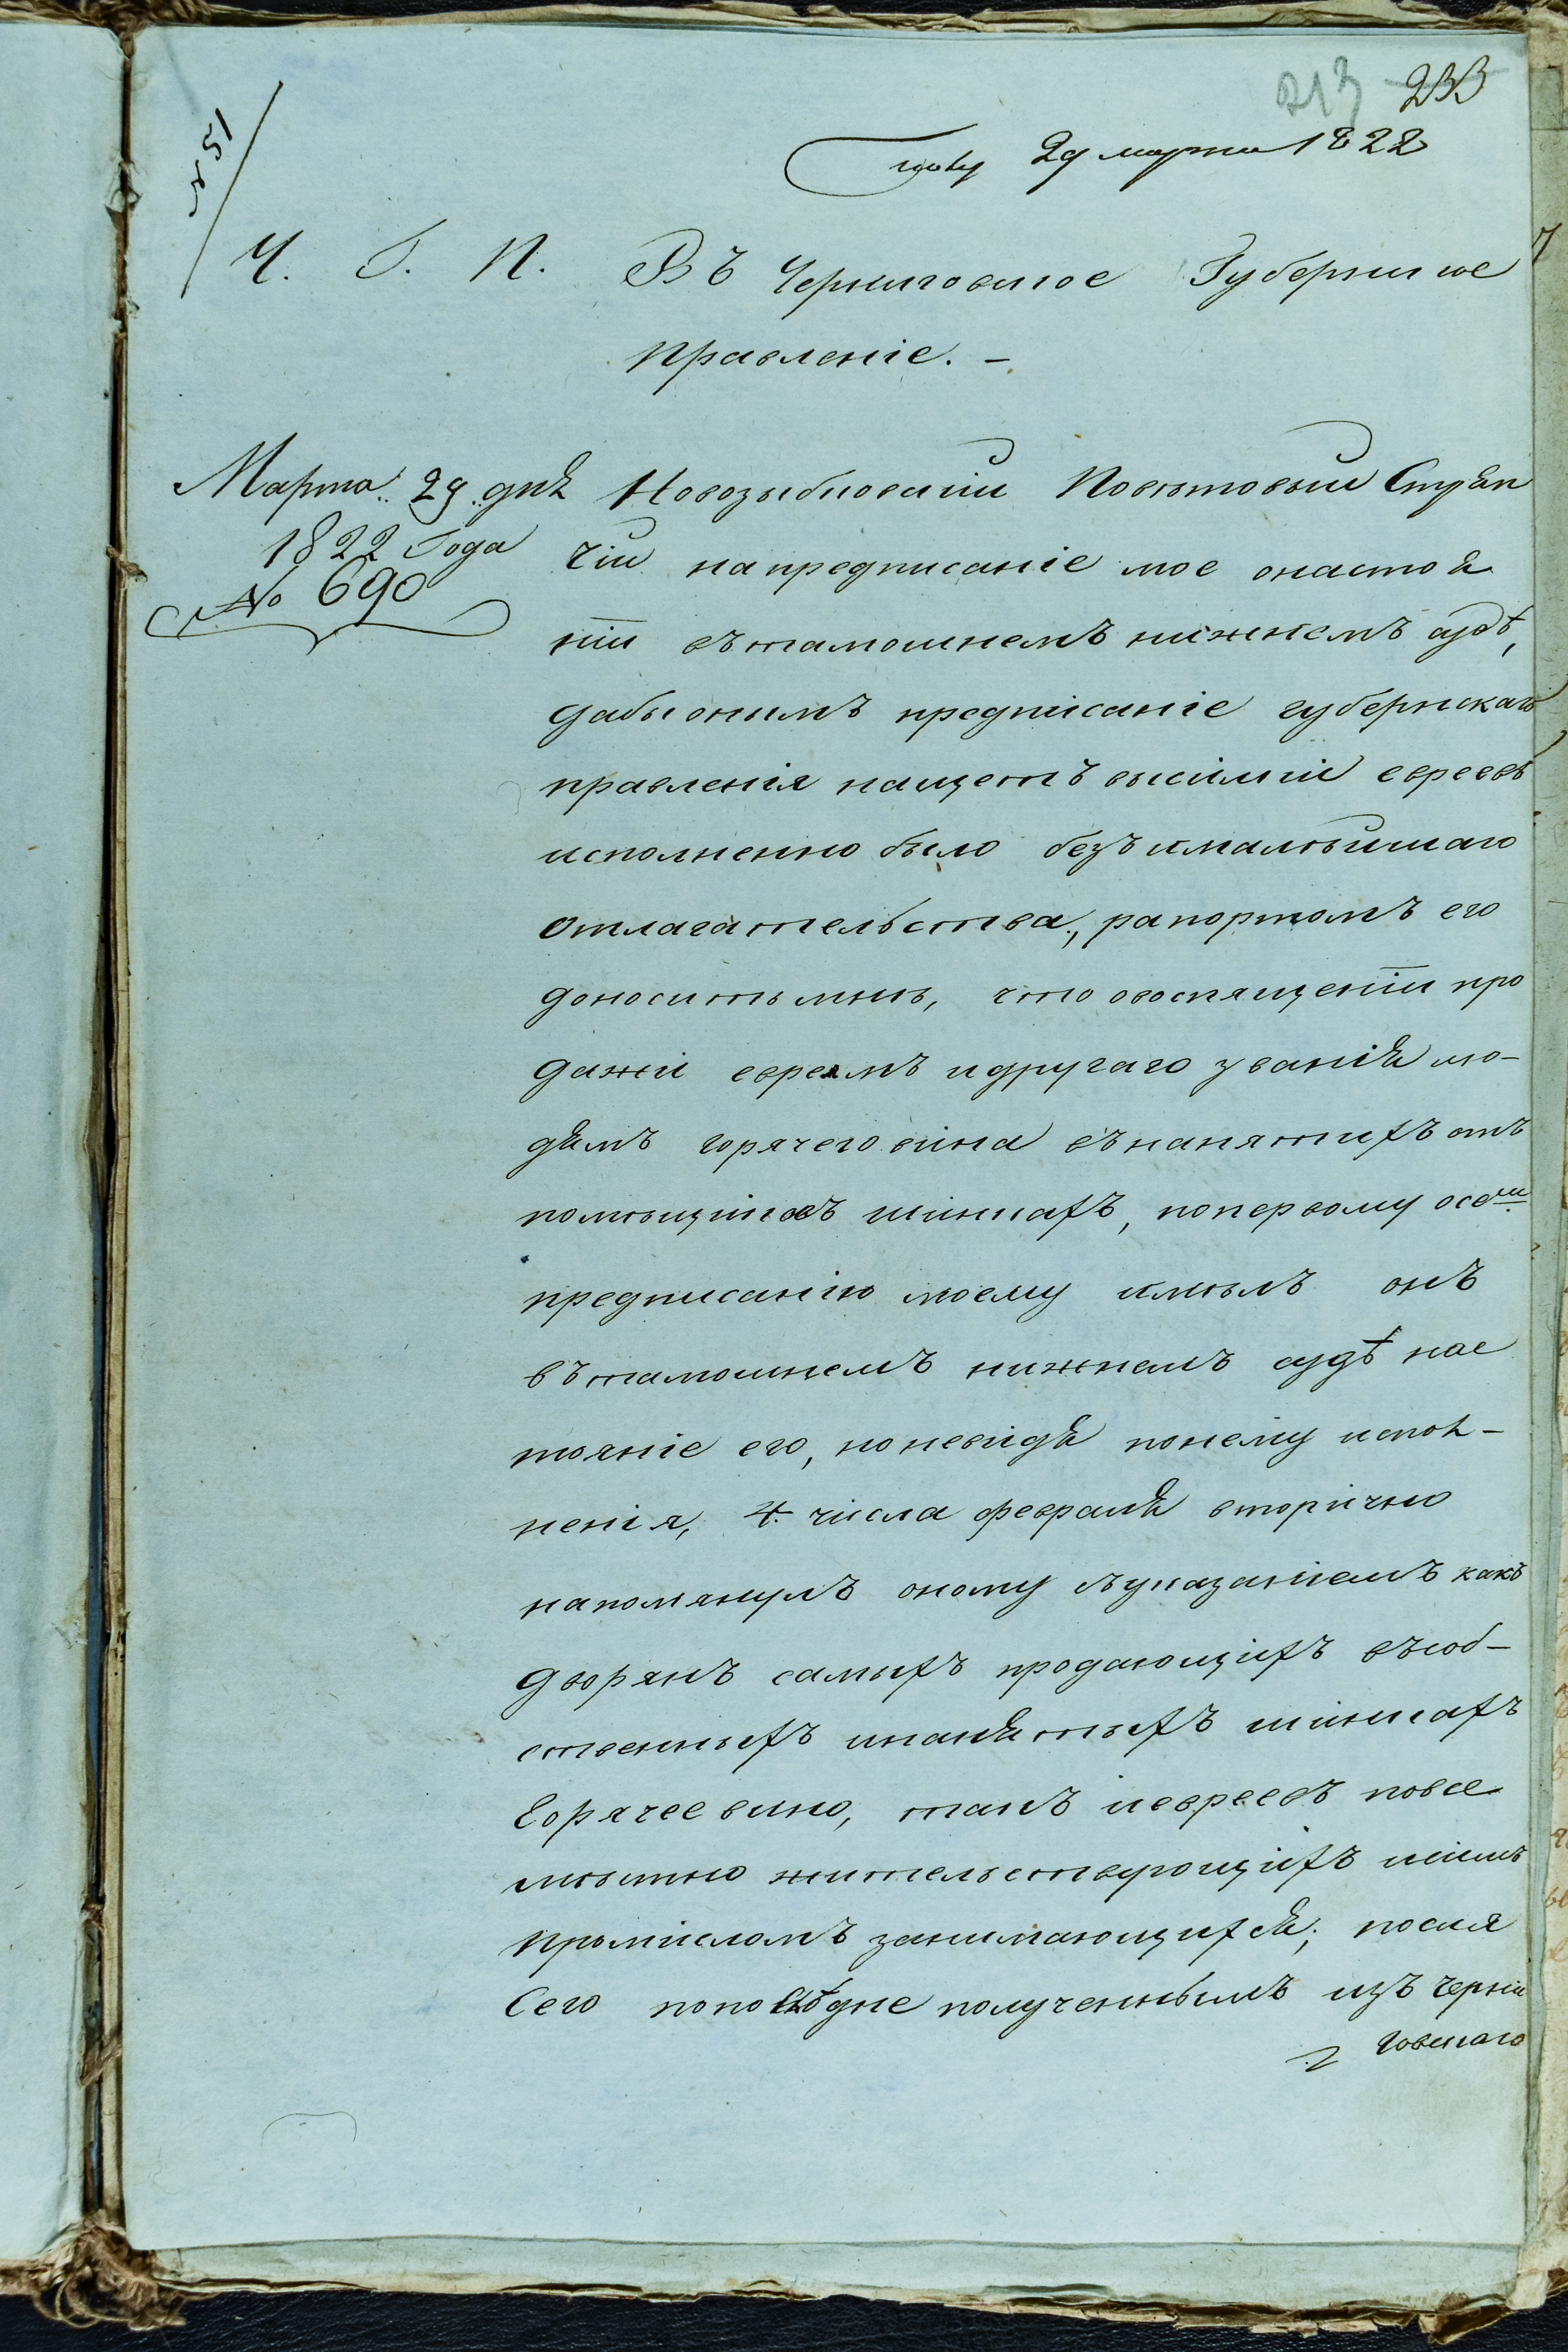 213 233
29 марта 1822
51
Ч. Г. П. Въ Черниговское Губернское
Правленіе. –
Марта 29 дня
1822 Года
№ 690
Новозыбковскій Поветовый Стряп
чій на предписаніе мое онастоя
ніи въ тамошнемъ нижнемъ судѣ,
дабы онымъ предписаніе губернскаго
правленія нащетъ висилкі евреевъ
исполненно было безъималѣйшаго
отлагательства, рапортомъ его
доноситъ мнѣ, что овоспященіи про
дажі евреямъ и другаго званія лю-
дямъ горячего віна въ нанятихъ отъ
помѣщіковъ шінкахъ, поперьвому осемъ
предписанію моему имѣлъ онъ
въ тамошнемъ нижнемъ судѣ нас
тояніе его, но невідя понему испол-
ненія, 4. чісла февраля вторічно
напомянулъ оному съуказаніемъ какъ
дворянъ самыхъ продающіхъ въсоб-
ственныхъ инанятыхъ шінкахъ
Горячее вино, такъ іевреевъ повсе
мѣстно жительствующіхъ исімъ
промісломъ занимающихся; посля
Сего пополудне полученнымъ изъ Черни
говскаго